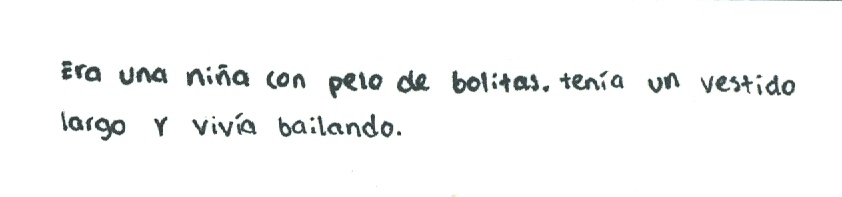 Era una niña con pelo de bolitas. tenía un vestido
largo y vivía bailando.